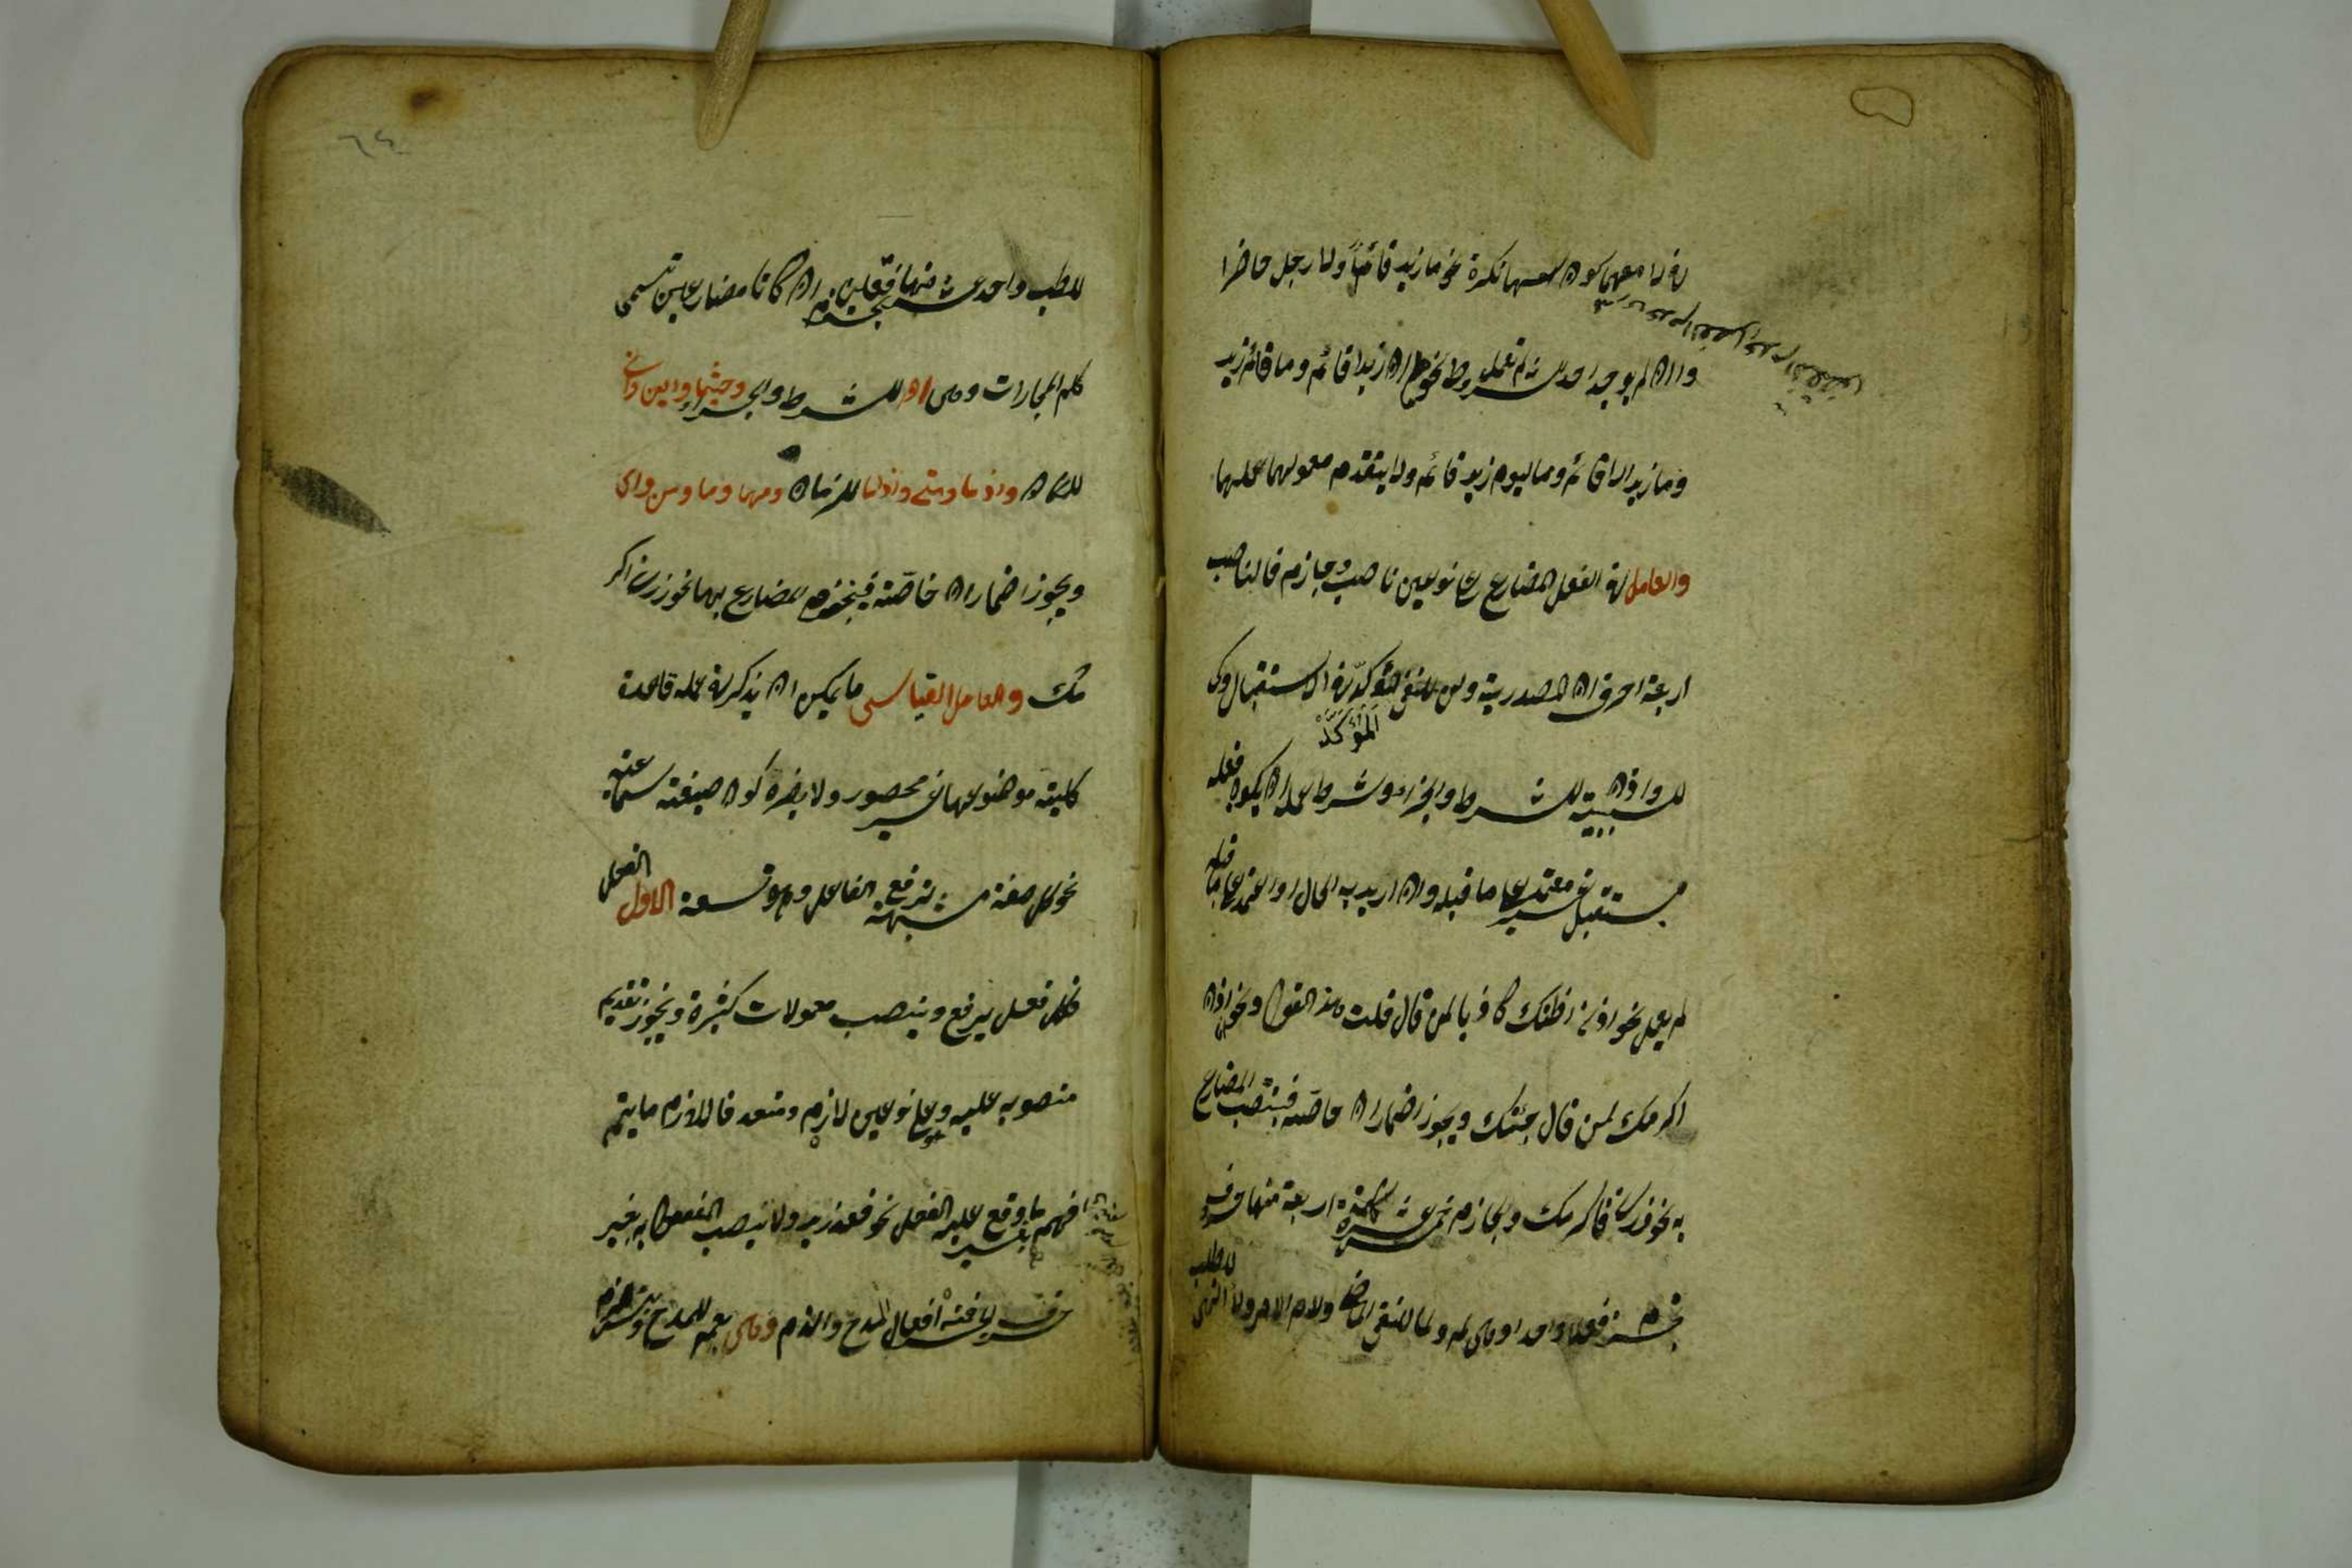 في لا معهما كون اسمها نكرة نحو ما زيد قائما ولا رجل حاضرا
وان لم يوجد احد لم تعمل نحو ان زيد قائم وما قائم زيد
وما زيد الا قائم وما اليوم زيد قائم ولا يتقدم معمولهما عليهما
والعامل في الفعل المضارع على نوعين ناصب وجازم فالناصب
اربعة احرف ان المصدرية ولن للنفي المؤكد في الاستقبال وكي
المؤكد
للسببية واذن للشرط والجزاء وشرط عمله ان يكون فعله
مستقبلا غير معتمد على ما قبله وان اريد به الحال او اعتمد على ما قبله
لم يعمل نحو اذن اظنك كاذبا لمن قال قلت هذا القول ونحو اذن
اكرمك لمن قال جئتك ويجوز اضمار ان خاصة فينتصب المضارع
به نحو زرني فاكرمك والجازم خمسة عشر كلمة اربعة منها حروف
تجزم فعلا واحدا وهي لم ولما للنفي الماضي ولام الامر ولا النهي للطلب
للطلب واحد عشر منها تجزم فعلين ان كانا مضارعين تسمى
كلم المجازات وهي ان للشرط والجزاء وحيثما واين وانى
للمكان واذ ما ومتى واذا ما للزمان ومهما وما ومن واي
ويجوز اضمار ان خاصة فينجزم المضارع بها نحو زرني اكر
مك والعامل القياسي ما يمكن ان يذكر في عمله قاعدة
كلية موضوعها غير محصور ولا يضره كون صيغته سماعية
نحو كل صفة مشبهة ترفع الفاعل وهو تسعة الاول الفعل
فكل فعل يرفع وينصب معمولات كثيرة ويجوز تقديم
منصوبه عليه وهو على نوعين لازم ومتعد فاللازم ما يتم
فهمه بغير ما وقع عليه الفعل نحو قعد زيد ولا ينصب المفعول به بغير
حرف الجر فمنه افعال المدح والذم وهي نعم للمدح وشرطه